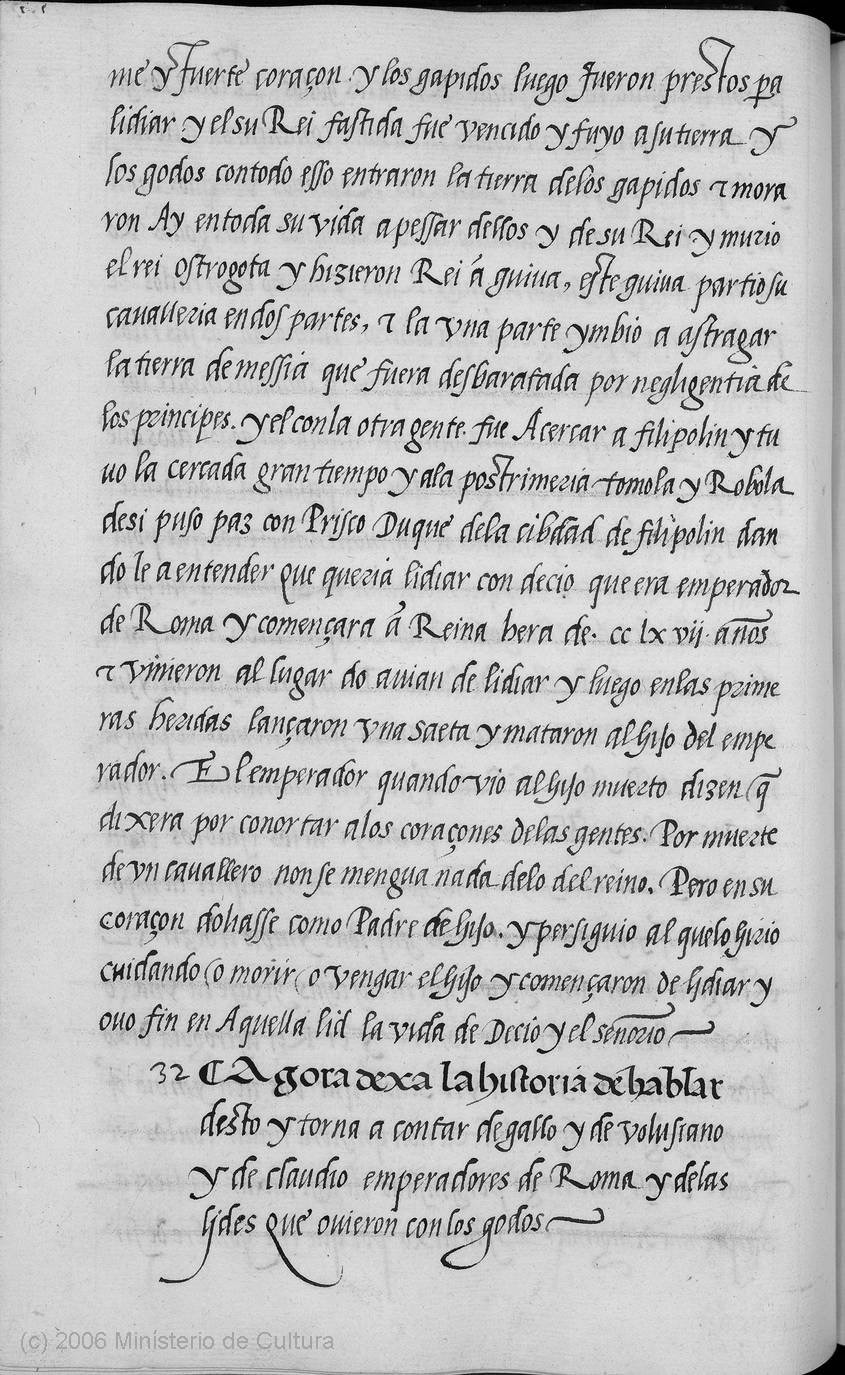 me y fuerte coraçon. y los gapidos luego fueron prestos pa
lidiar y el su Rei fastida fue vencido y fuyo a su tierra y
los godos con todo esso entraron la tierra delos gapidos τ mora
ron Ay en toda su vida a pessar dellos y de su Rei y murio
el rei ostrogota y hizieron Rei á guiva, este guiva partio su
cavalleria en dos partes, τ la vna parte ymbio a astragar
la tierra de messia que fuera desbaratada por negligentia de
los principes. y el con la otra gente. fue Acercar a filipolin y tu
uo la cercada gran tiempo y ala postrimeria tomola y Robola
desi puso paz con Prisco Duque dela cibdad de filipolin dan
do le a entender que queria lidiar con decio que era emperador
de Roma y començara á Reina hera de. cc lx vii. años
τ vinieron al lugar do auian de lidiar y luego enlas prime
ras heridas lançaron vna saeta y mataron al hijo del empe
rador. El emperador quando vio al hijo muerto dizen q̃
dixera por conortar a los coraçones delas gentes. Por muerte
de vn cavallero non se mengua nada delo del reino. Pero en su
coraçon doliasse como Padre de hijo. y persiguio al quelo hirio
cuidando (o morir (o vengar el hijo y començaron de lidiar y
ouo fin en Aquella lid la vida de Decio y el señorio
32 CAgora dexa la historia de hablar
desto y torna a contar de gallo y de volusiano
y de claudio emperadores de Roma y delas
lides que ovieron con los godos
(c) 2006 Ministerio de Cultura